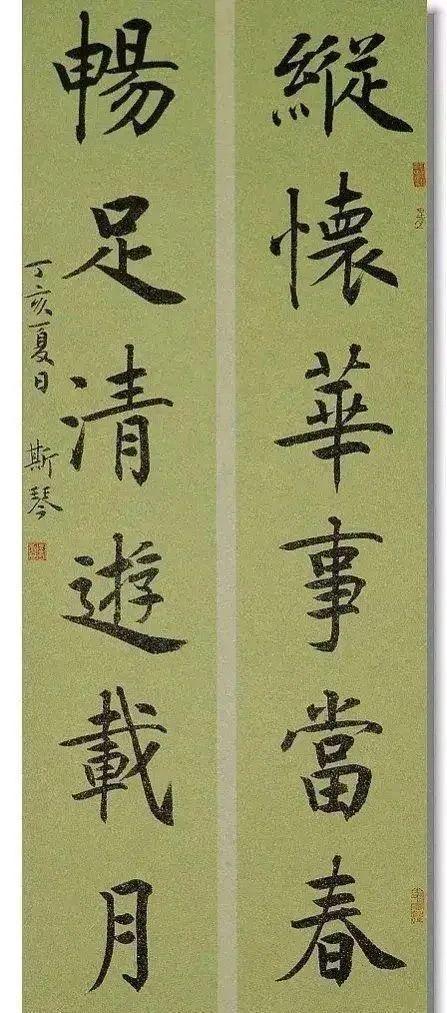 縱懷華事當春
暢足清遊載月
丁亥夏日 斯琴